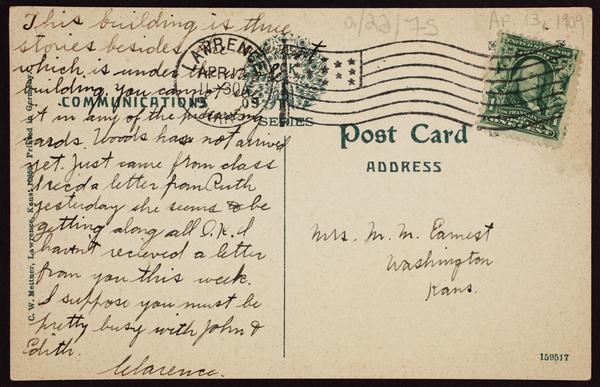 This building is three
stories besides
which is under the
building. You cannot
it in any of the
cards. Woods has not arrived
yet. Just came from class
I rec'd a letter from Ruth
yesterday she seems to be
getting along all O.K. I
havn't recieved a letter
from you this week.
I suppose you must be
pretty busy with John &
Edith.
Clarence.
COMMUNICATIONS
SERIES
C. W. Mettner, Lawrence, Kans. Printed in Germany
LAWRENCE
APR 12
1-30A
09
KANS.
0/22/75
AP. 13, 1909
Post Card
ADDRESS
Mrs. M. M. Earnest
Washington
Kans.
159517